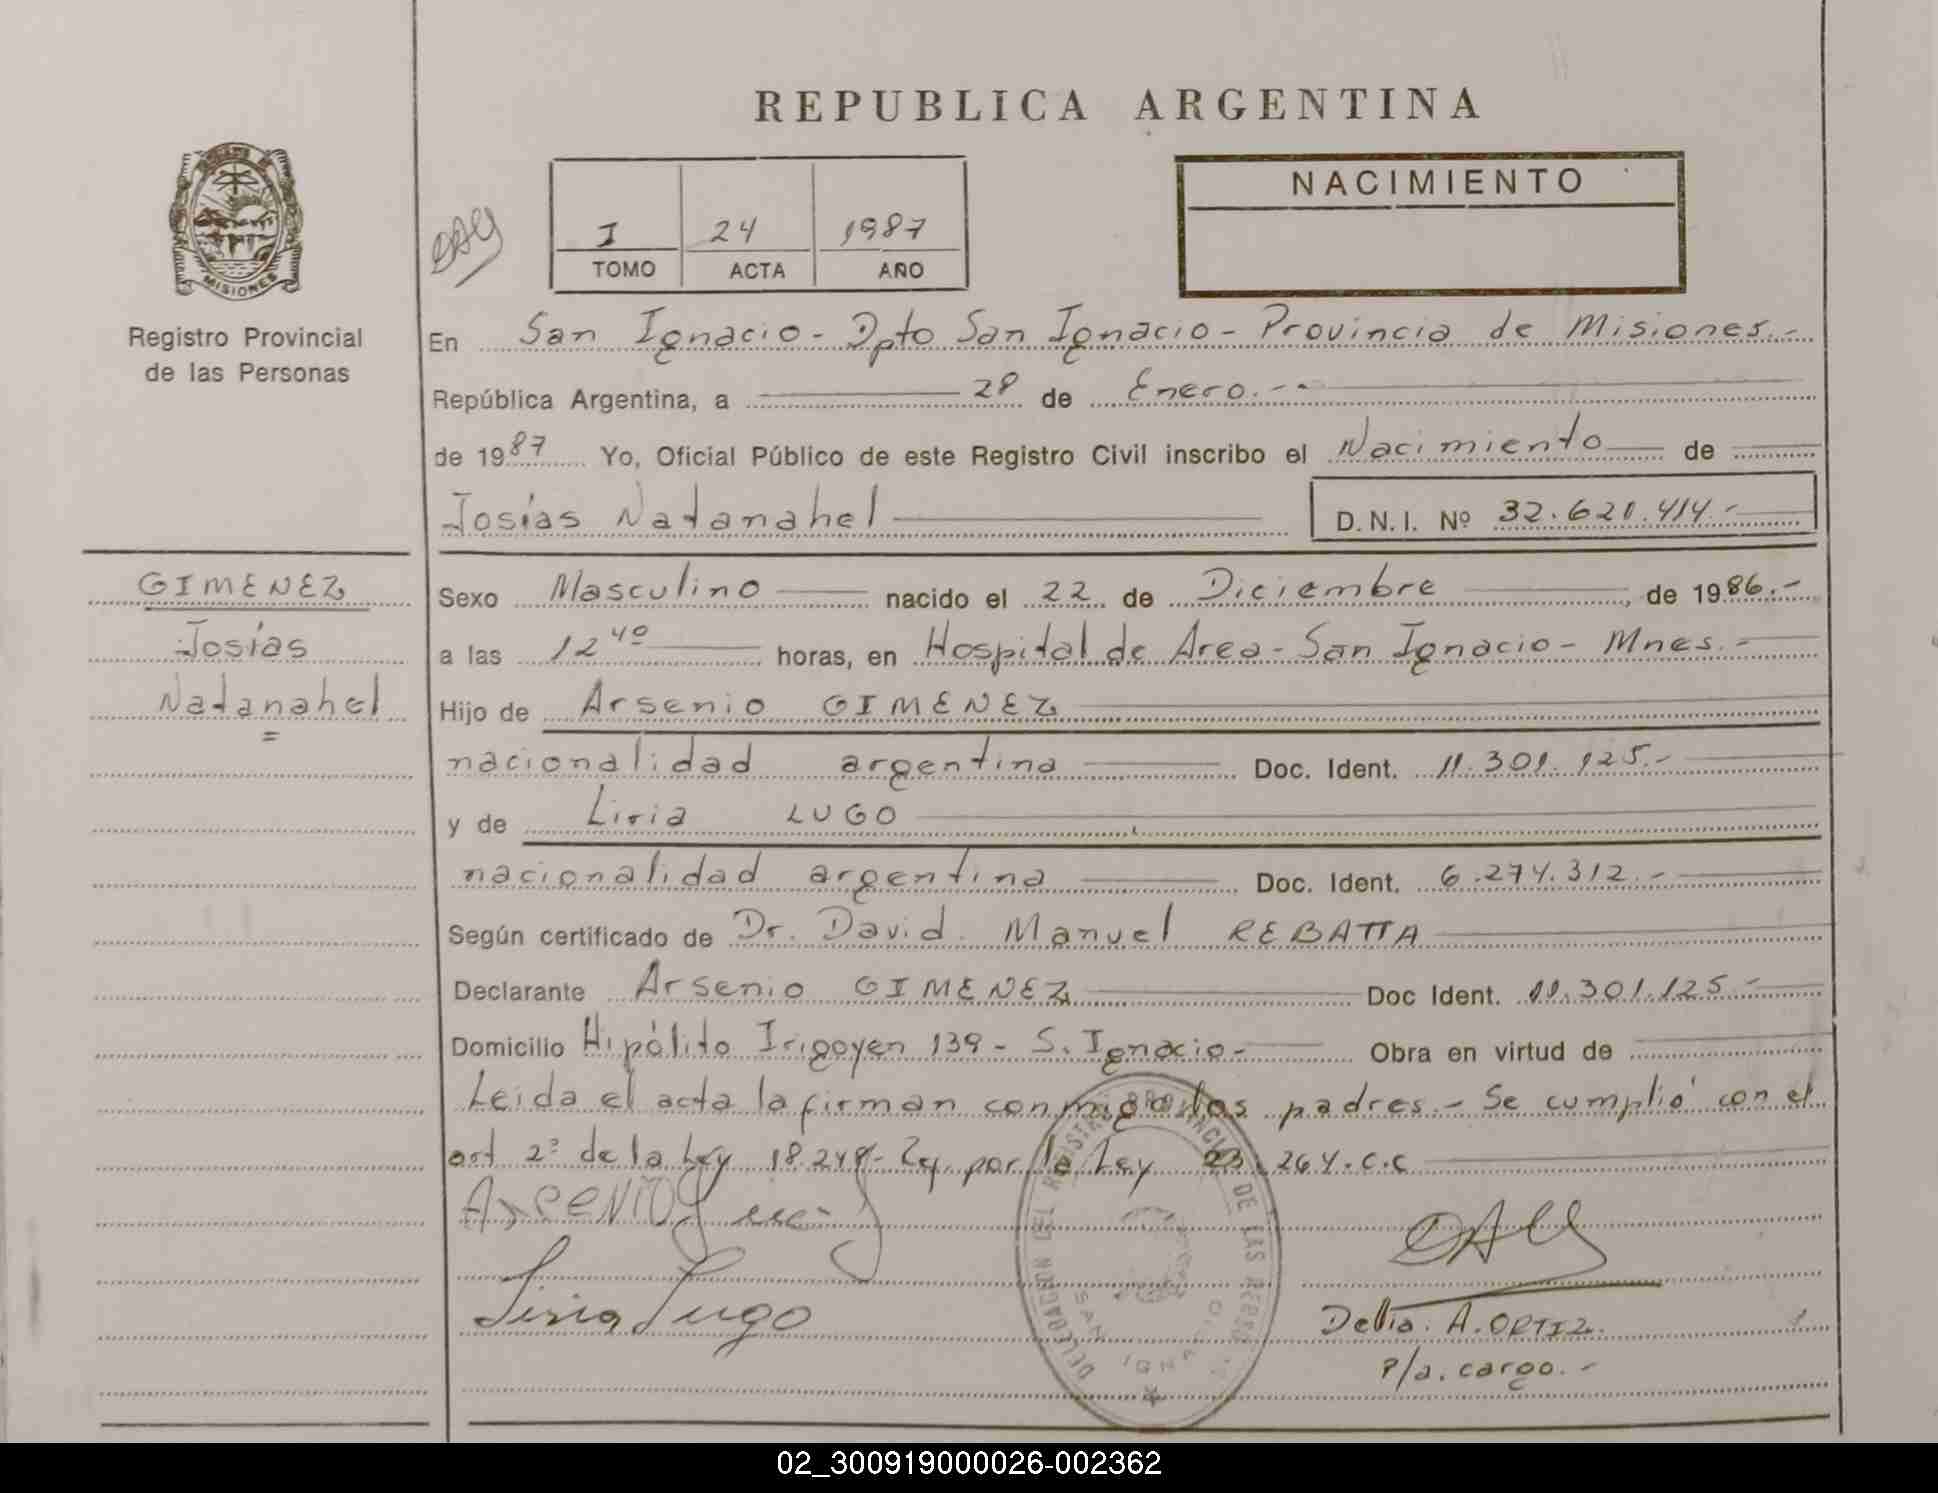 REPUBLICA ARGENTINA
NACIMIENTO
I 24 1987
TOMO ACTA AÑO
MISIONES
Registro Provincial
de las Personas
En San Ignacio - Dpto San Ignacio - Provincia de Misiones.-
República Argentina, a 28 de Enero.-
de 1987 Yo, Oficial Público de este Registro Civil inscribo el Nacimiento de
Josías Natanahel D.N.I. Nº 32.621.414.-
GIMENEZ
Josías
Natanahel
=
Sexo Masculino nacido el 22 de Diciembre, de 1986.-
a las 12 40 horas, en Hospital de Area - San Ignacio - Mnes.-
Hijo de Arsenio GIMENEZ
nacionalidad argentina Doc. Ident. 11.301.125.-
y de Liria LUGO
nacionalidad argentina Doc. Ident. 6.274.312.-
Según certificado de Dr. David Manuel REBATTA
Declarante Arsenio GIMENEZ Doc Ident. 11.301.125.-
Domicilio Hipólito Irigoyen 139 - S. Ignacio - Obra en virtud de
Leida el acta la firman conmigo los padres.- Se cumplió con el
art 2º de la Ley 18.248 - por la Ley 23.264.C.C
ARSENIO
Liria Lugo
DELEGACION DEL REGISTRO PROVINCIAL DE LAS PERSONAS
SAN IGNACIO
Delia. A. ORTIZ.
P/a. cargo.-
02_300919000026-002362